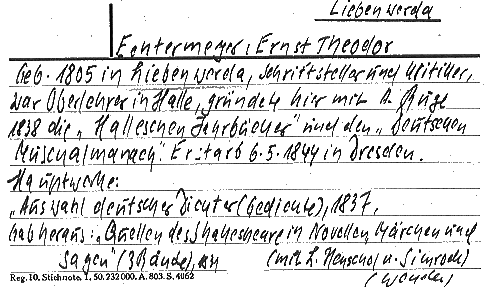 Liebenwerda
Echtermeyer, Ernst Theodor
Geb. 1805 in Liebenwerda, Schriftsteller und Kritiker,
war Oberlehrer in Halle, gründete hier mit A. Ruge
1838 die „Halleschen Jahrbücher" und den „Deutschen
Musenalmanach". Er starb 6.5.1844 in Dresden.
Hauptwerke:
„Auswahl deutscher Dichter (Gedichte), 1837,
gab heraus: „Quellen des Shakespeare in Novellen, Märchen und
Sagen" (3 Bände), (mit L. Henschel u. Simrock)
Reg. 10. Stichnote. 1, 50. 232 000. A. 803. S. 4062